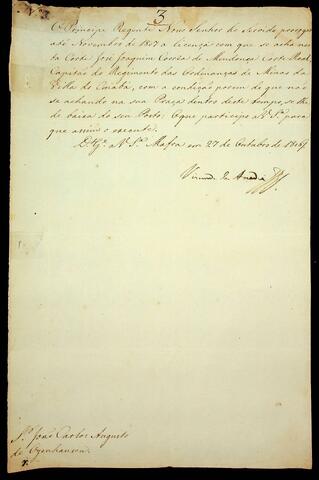 Nº 3.
3
O Principe Regente Nosso Senhor he Servido prorogar
até Novembro de 1807 a licença com que se acha nes-
ta Corte José Joaquim Corrêa de Mendonça Corte Real,
Capitão do Regimento das Ordenanças de Minas da
Villa de Cuiaba, com a condição porem de que não
se achando na sua Praça dentro deste tempo, se lhe
dê baixa do seu Posto: O que participo a V. Sª para
que assim o execute.
D.s G.e a V. Sª Mafra em 27 de Outubro de 1806.
Visconde de Anadia
Sr. João Carlos Augusto
de Oyenhausen.